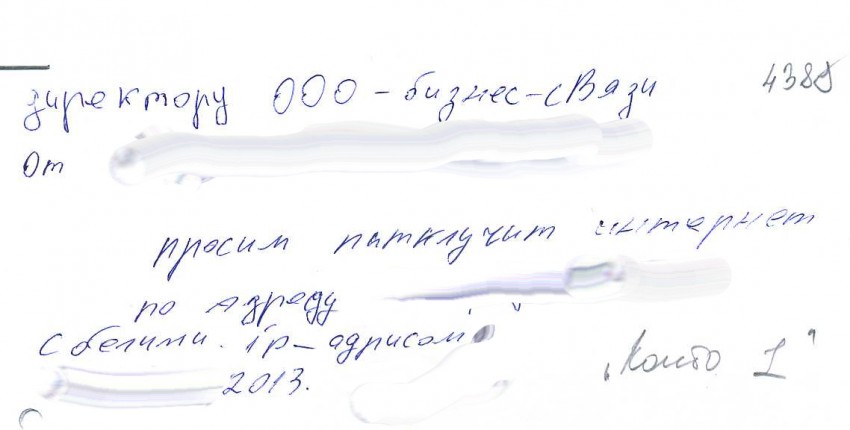 директору ООО - бизнес-сВязи 4389
От
просим патключит интернет
по адресу
с белими ip - адрисом
2013.